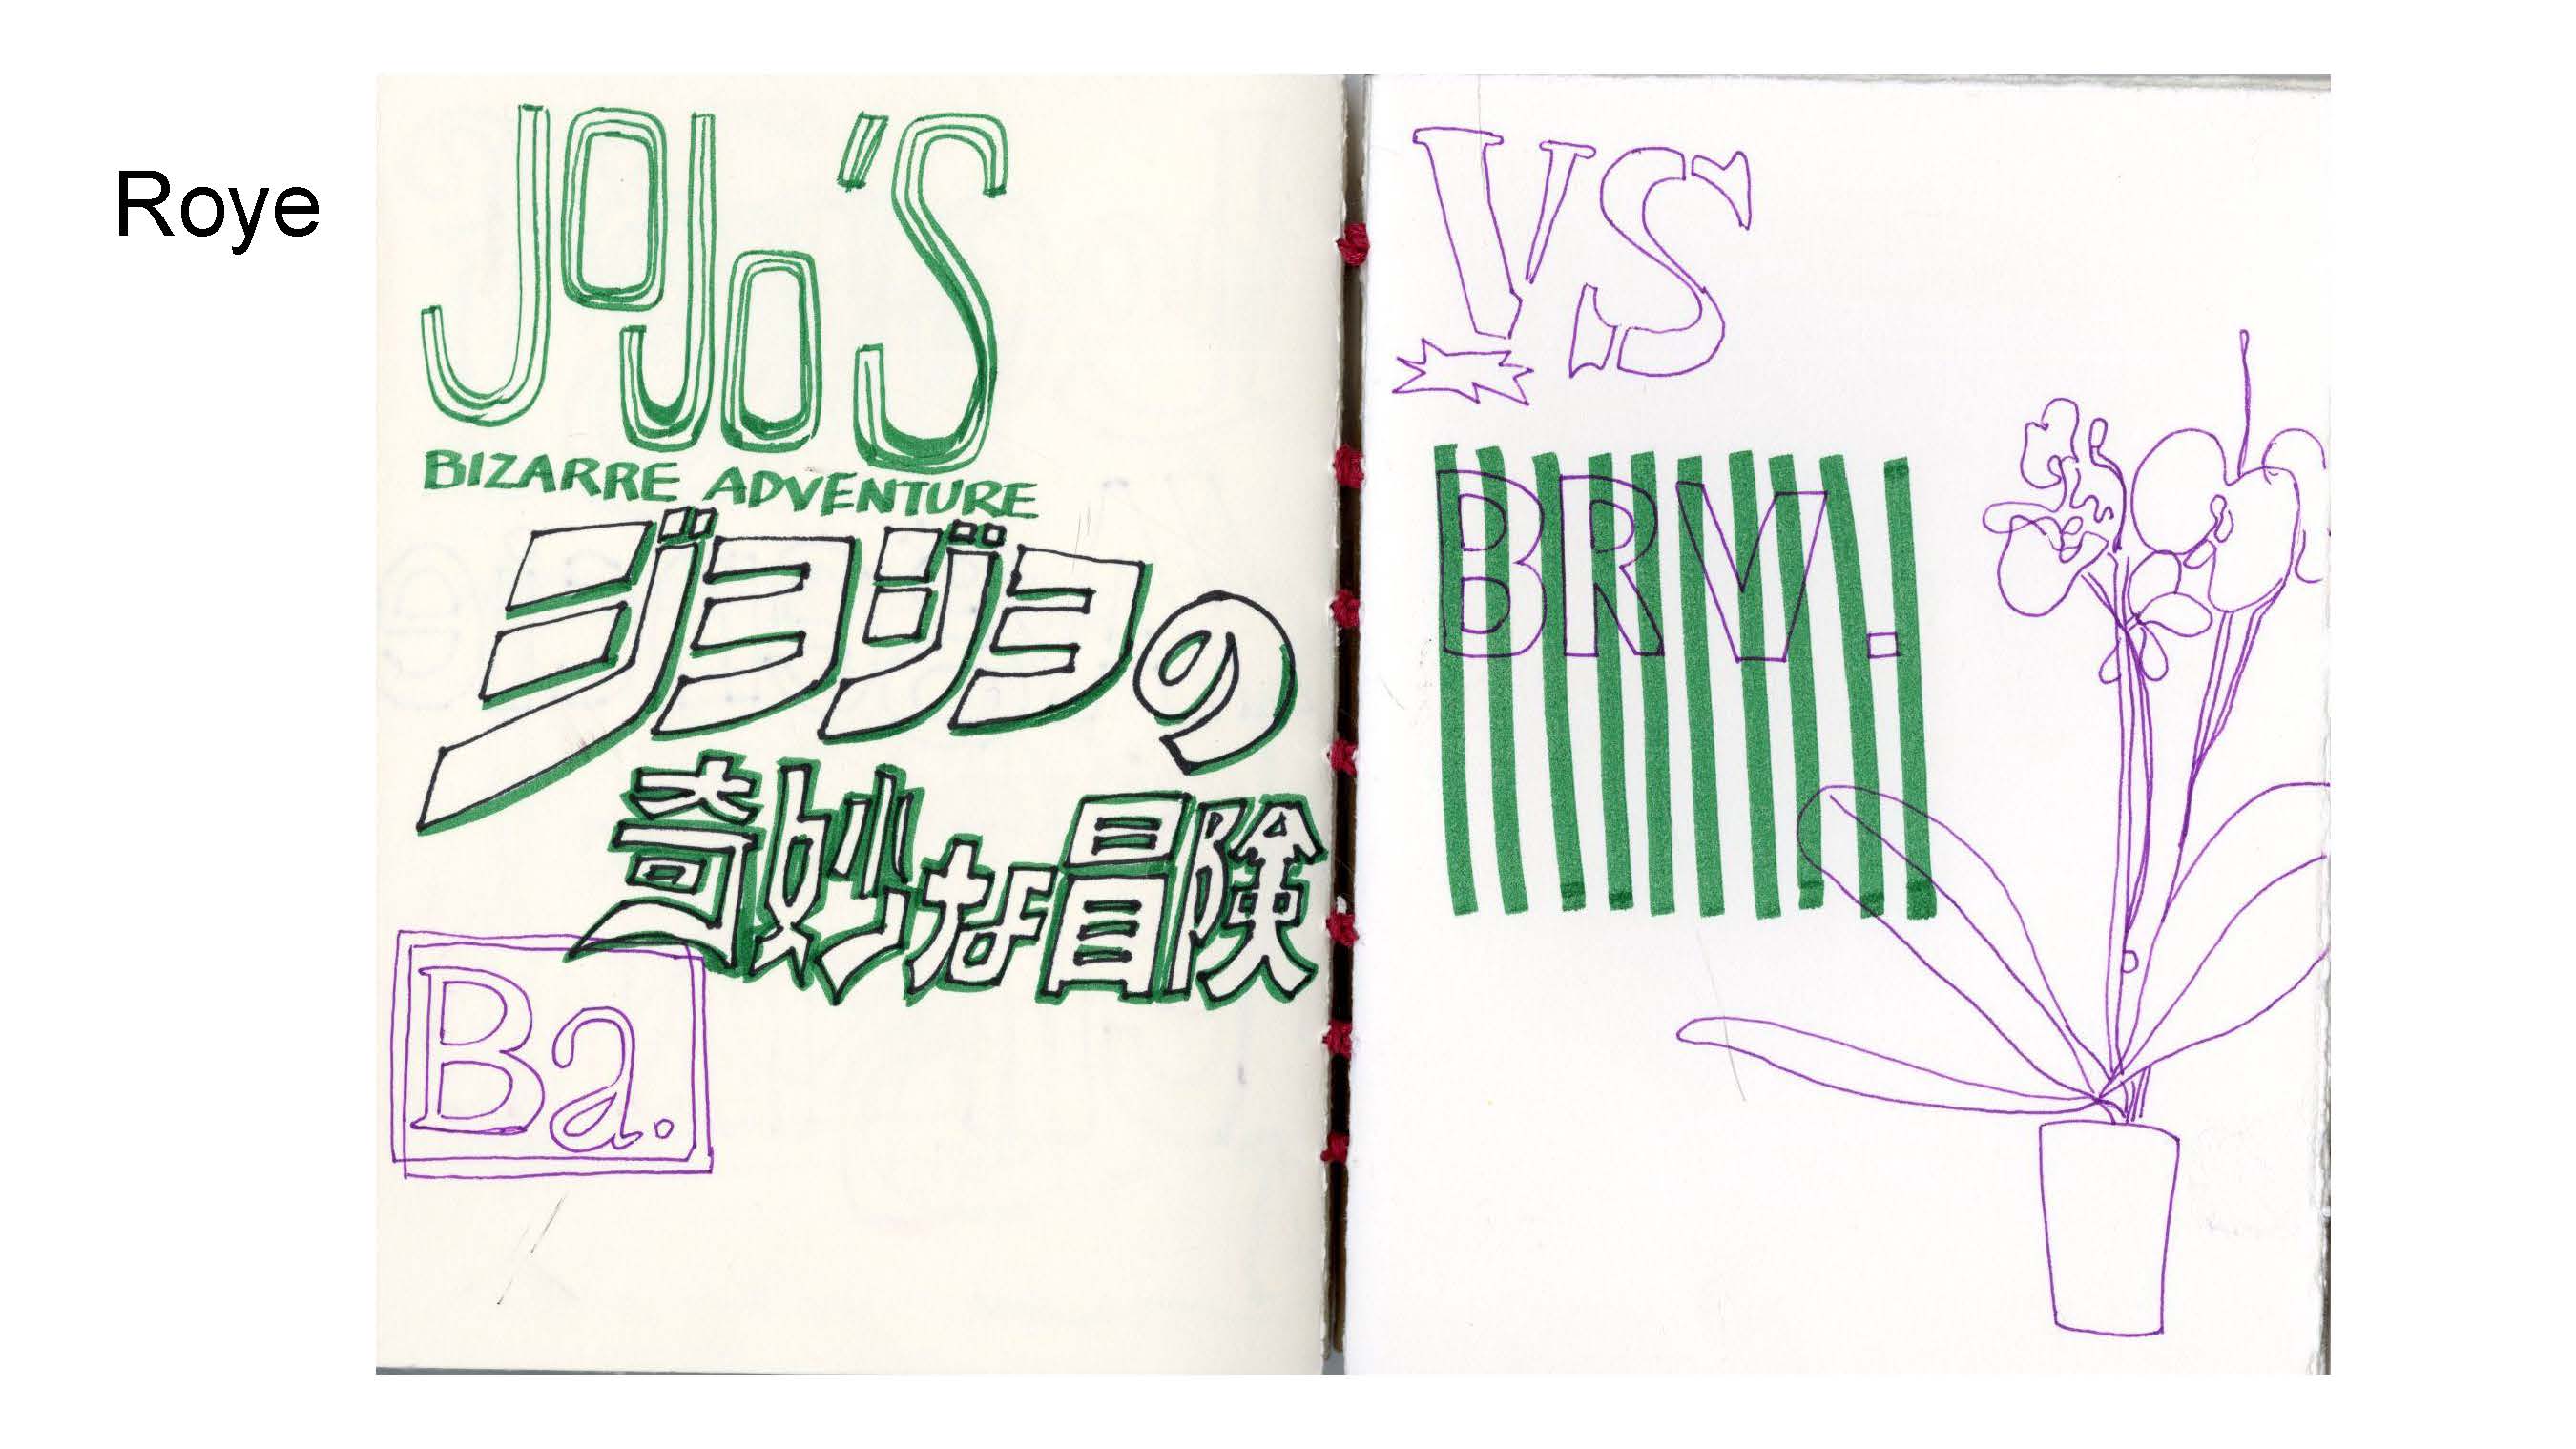 Roye
JOJO'S
BIZARRE ADVENTURE
ジョジョの
奇妙な冒険
Ba.
VS
BRV.